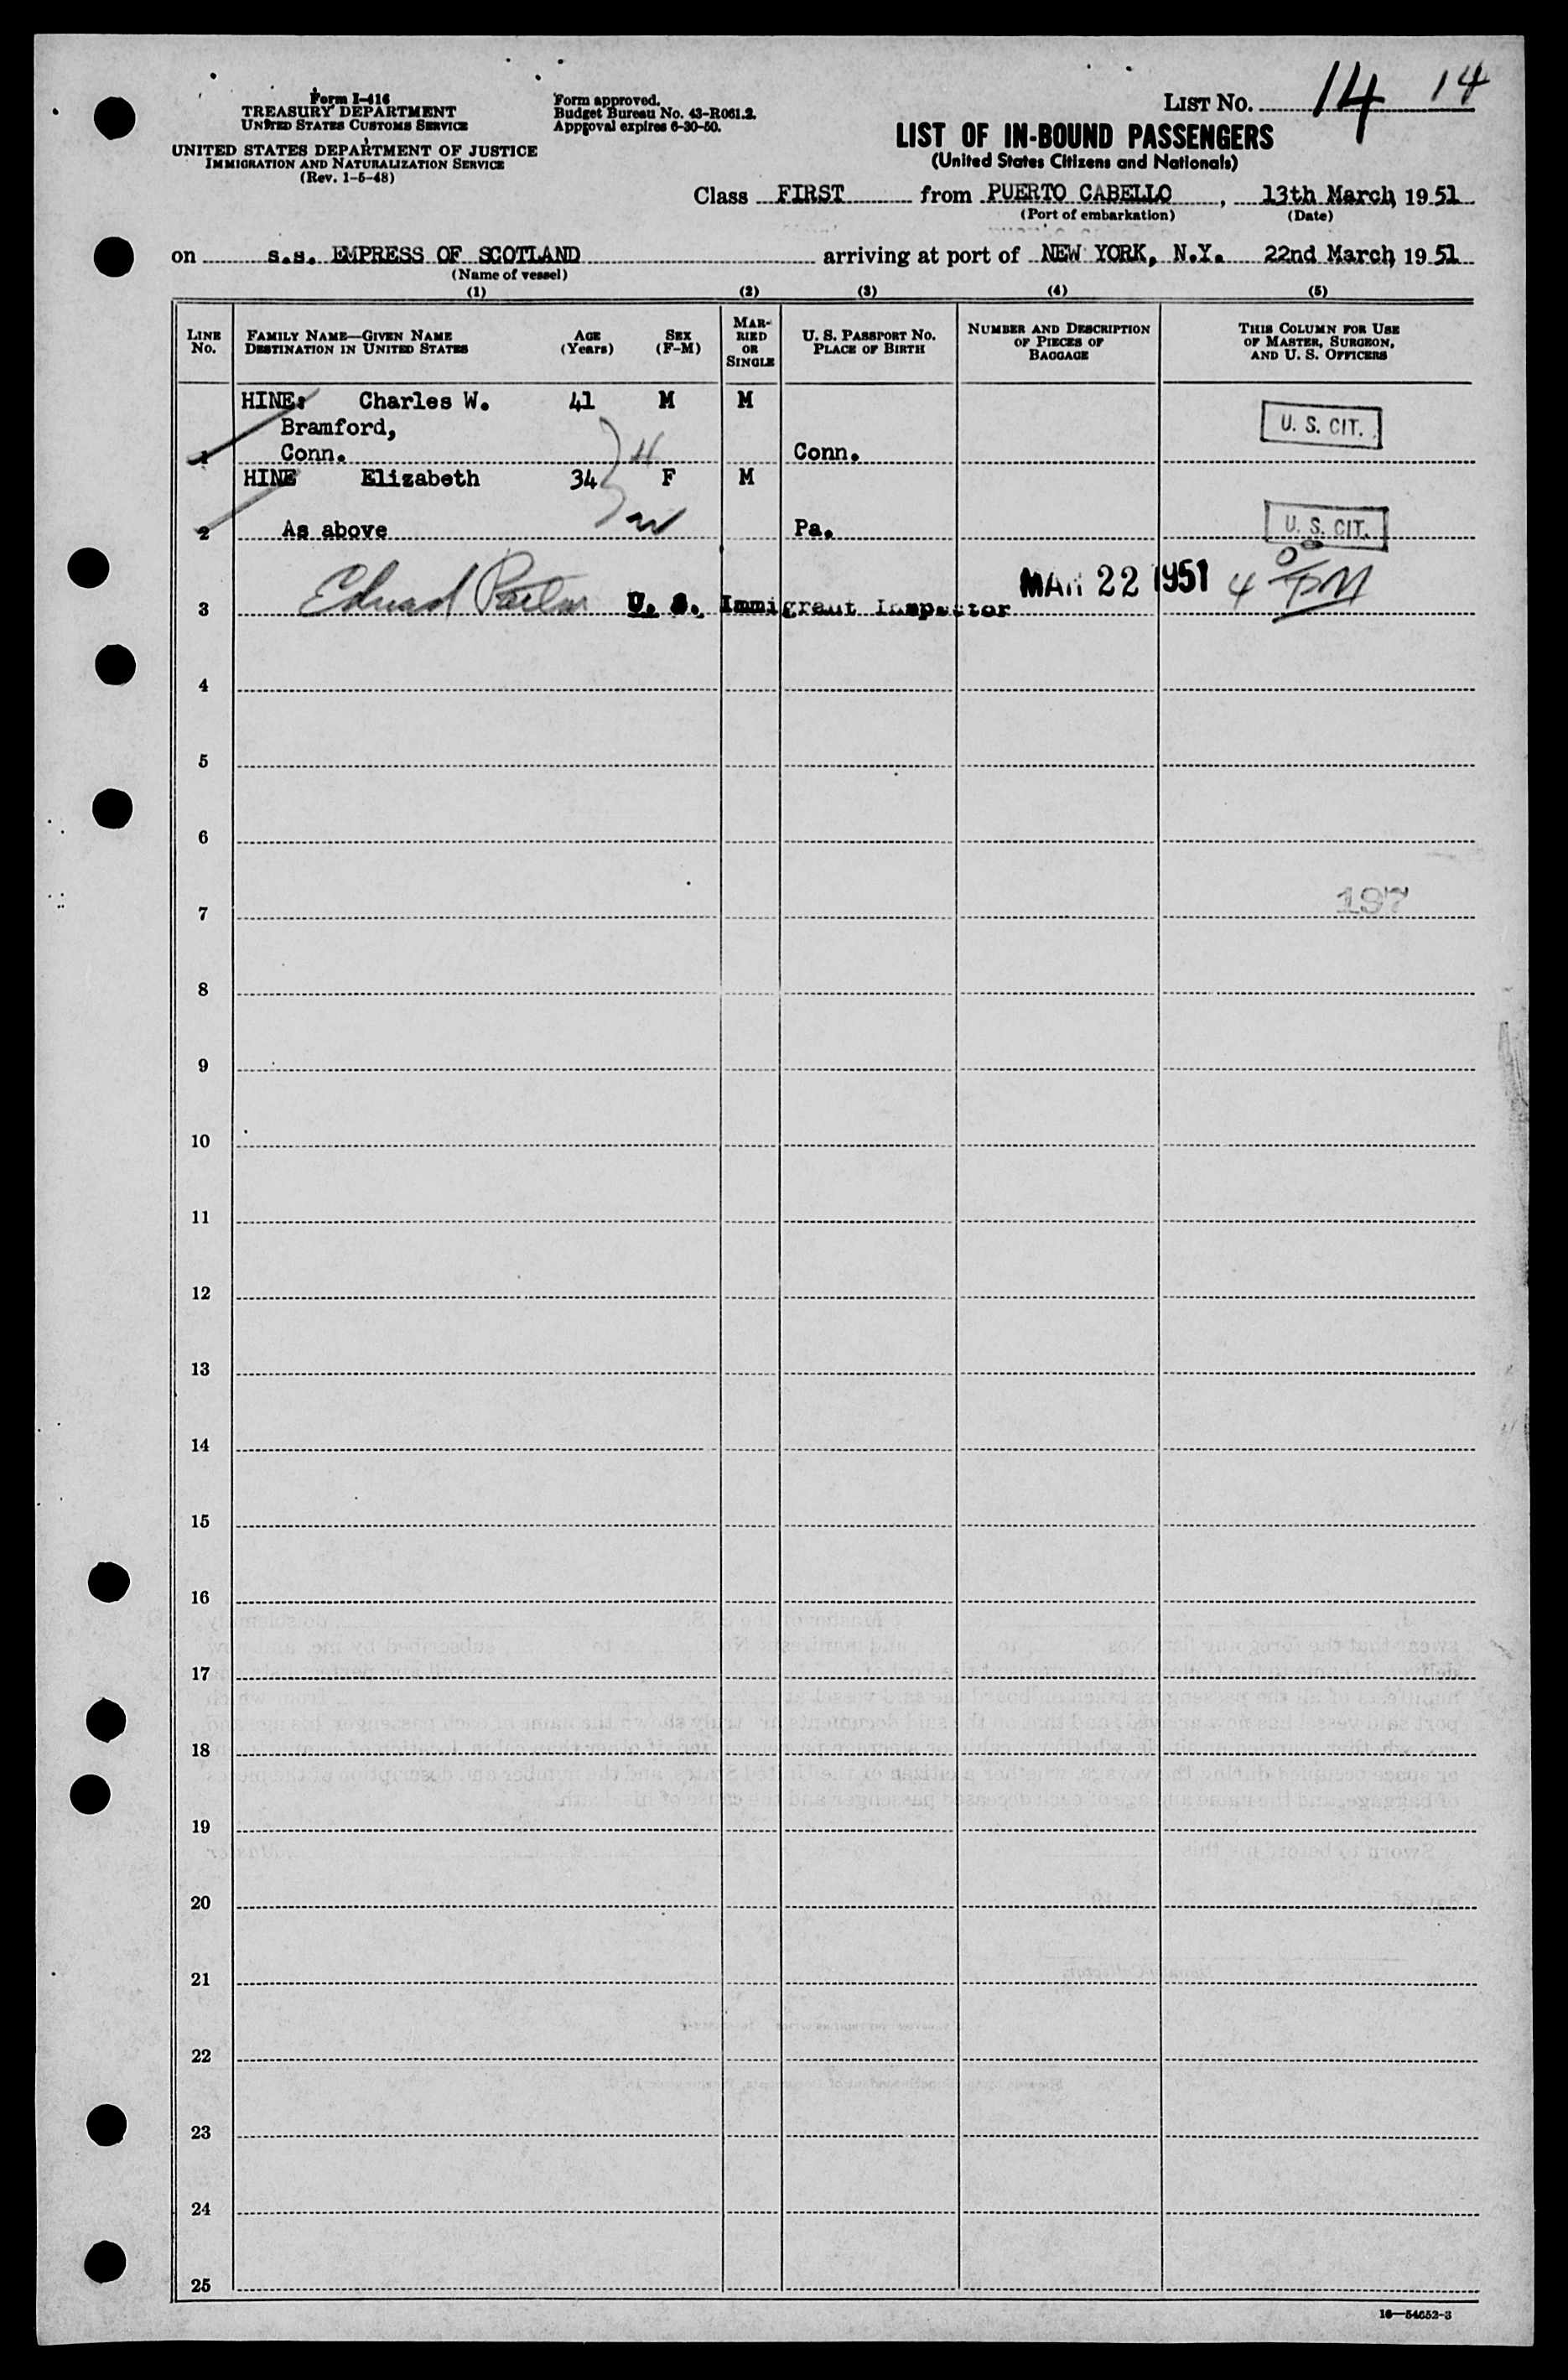 Form I-416
TREASURY DEPARTMENT
UNITED STATES CUSTOMS SERVICE
UNITED STATES DEPARTMENT OF JUSTICE
IMMIGRATION AND NATURALIZATION SERVICE
(Rev. 1-5-48)
Form approved.
Budget Bureau No. 43-R061.2.
Approval expires 6-30-50.
LIST NO. 14 14
LIST OF IN-BOUND PASSENGERS
(United States Citizens and Nationals)
Class FIRST from PUERTO CABELLO, 13th March, 1951
(Port of embarkation) (Date)
on s.s. EMPRESS OF SCOTLAND arriving at port of NEW YORK, N.Y. 22nd March, 1951
(Name of vessel)
(1) (2) (3) (4) (5)
LINE NO.
FAMILY NAME—GIVEN NAME
DESTINATION IN UNITED STATES
AGE (Years)
SEX (F-M)
MARRIED OR SINGLE
U. S. PASSPORT NO.
PLACE OF BIRTH
NUMBER AND DESCRIPTION
OF PIECES OF
BAGGAGE
THIS COLUMN FOR USE
OF MASTER, SURGEON,
AND U. S. OFFICERS
HINE: Charles W. 41 M M
Bramford,
1 Conn. Conn.
U. S. CIT.
HINE Elizabeth 34 F M
2 As above Pa.
U. S. CIT.
3 U. S. Immigrant Inspector MAR 22 1951 4 00 PM
4
5
6
7 197
8
9
10
11
12
13
14
15
16
17
18
19
20
21
22
23
24
25
16—54652-3